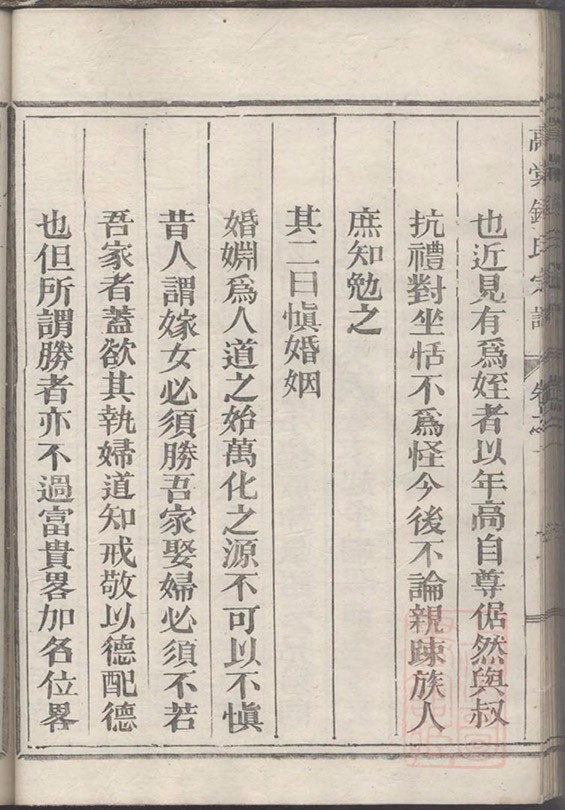 也近見有為姪者以年高自尊倨然與叔
抗禮對坐恬不為怪今後不論親疎族人
庶知勉之
其二曰慎婚姻
婚姻為人道之始萬化之源不可以不慎
昔人謂嫁女必須勝吾家娶婦必須不若
吾家者蓋欲其執婦道知戒敬以德配德
也但所謂勝者亦不過富貴畧加名位畧